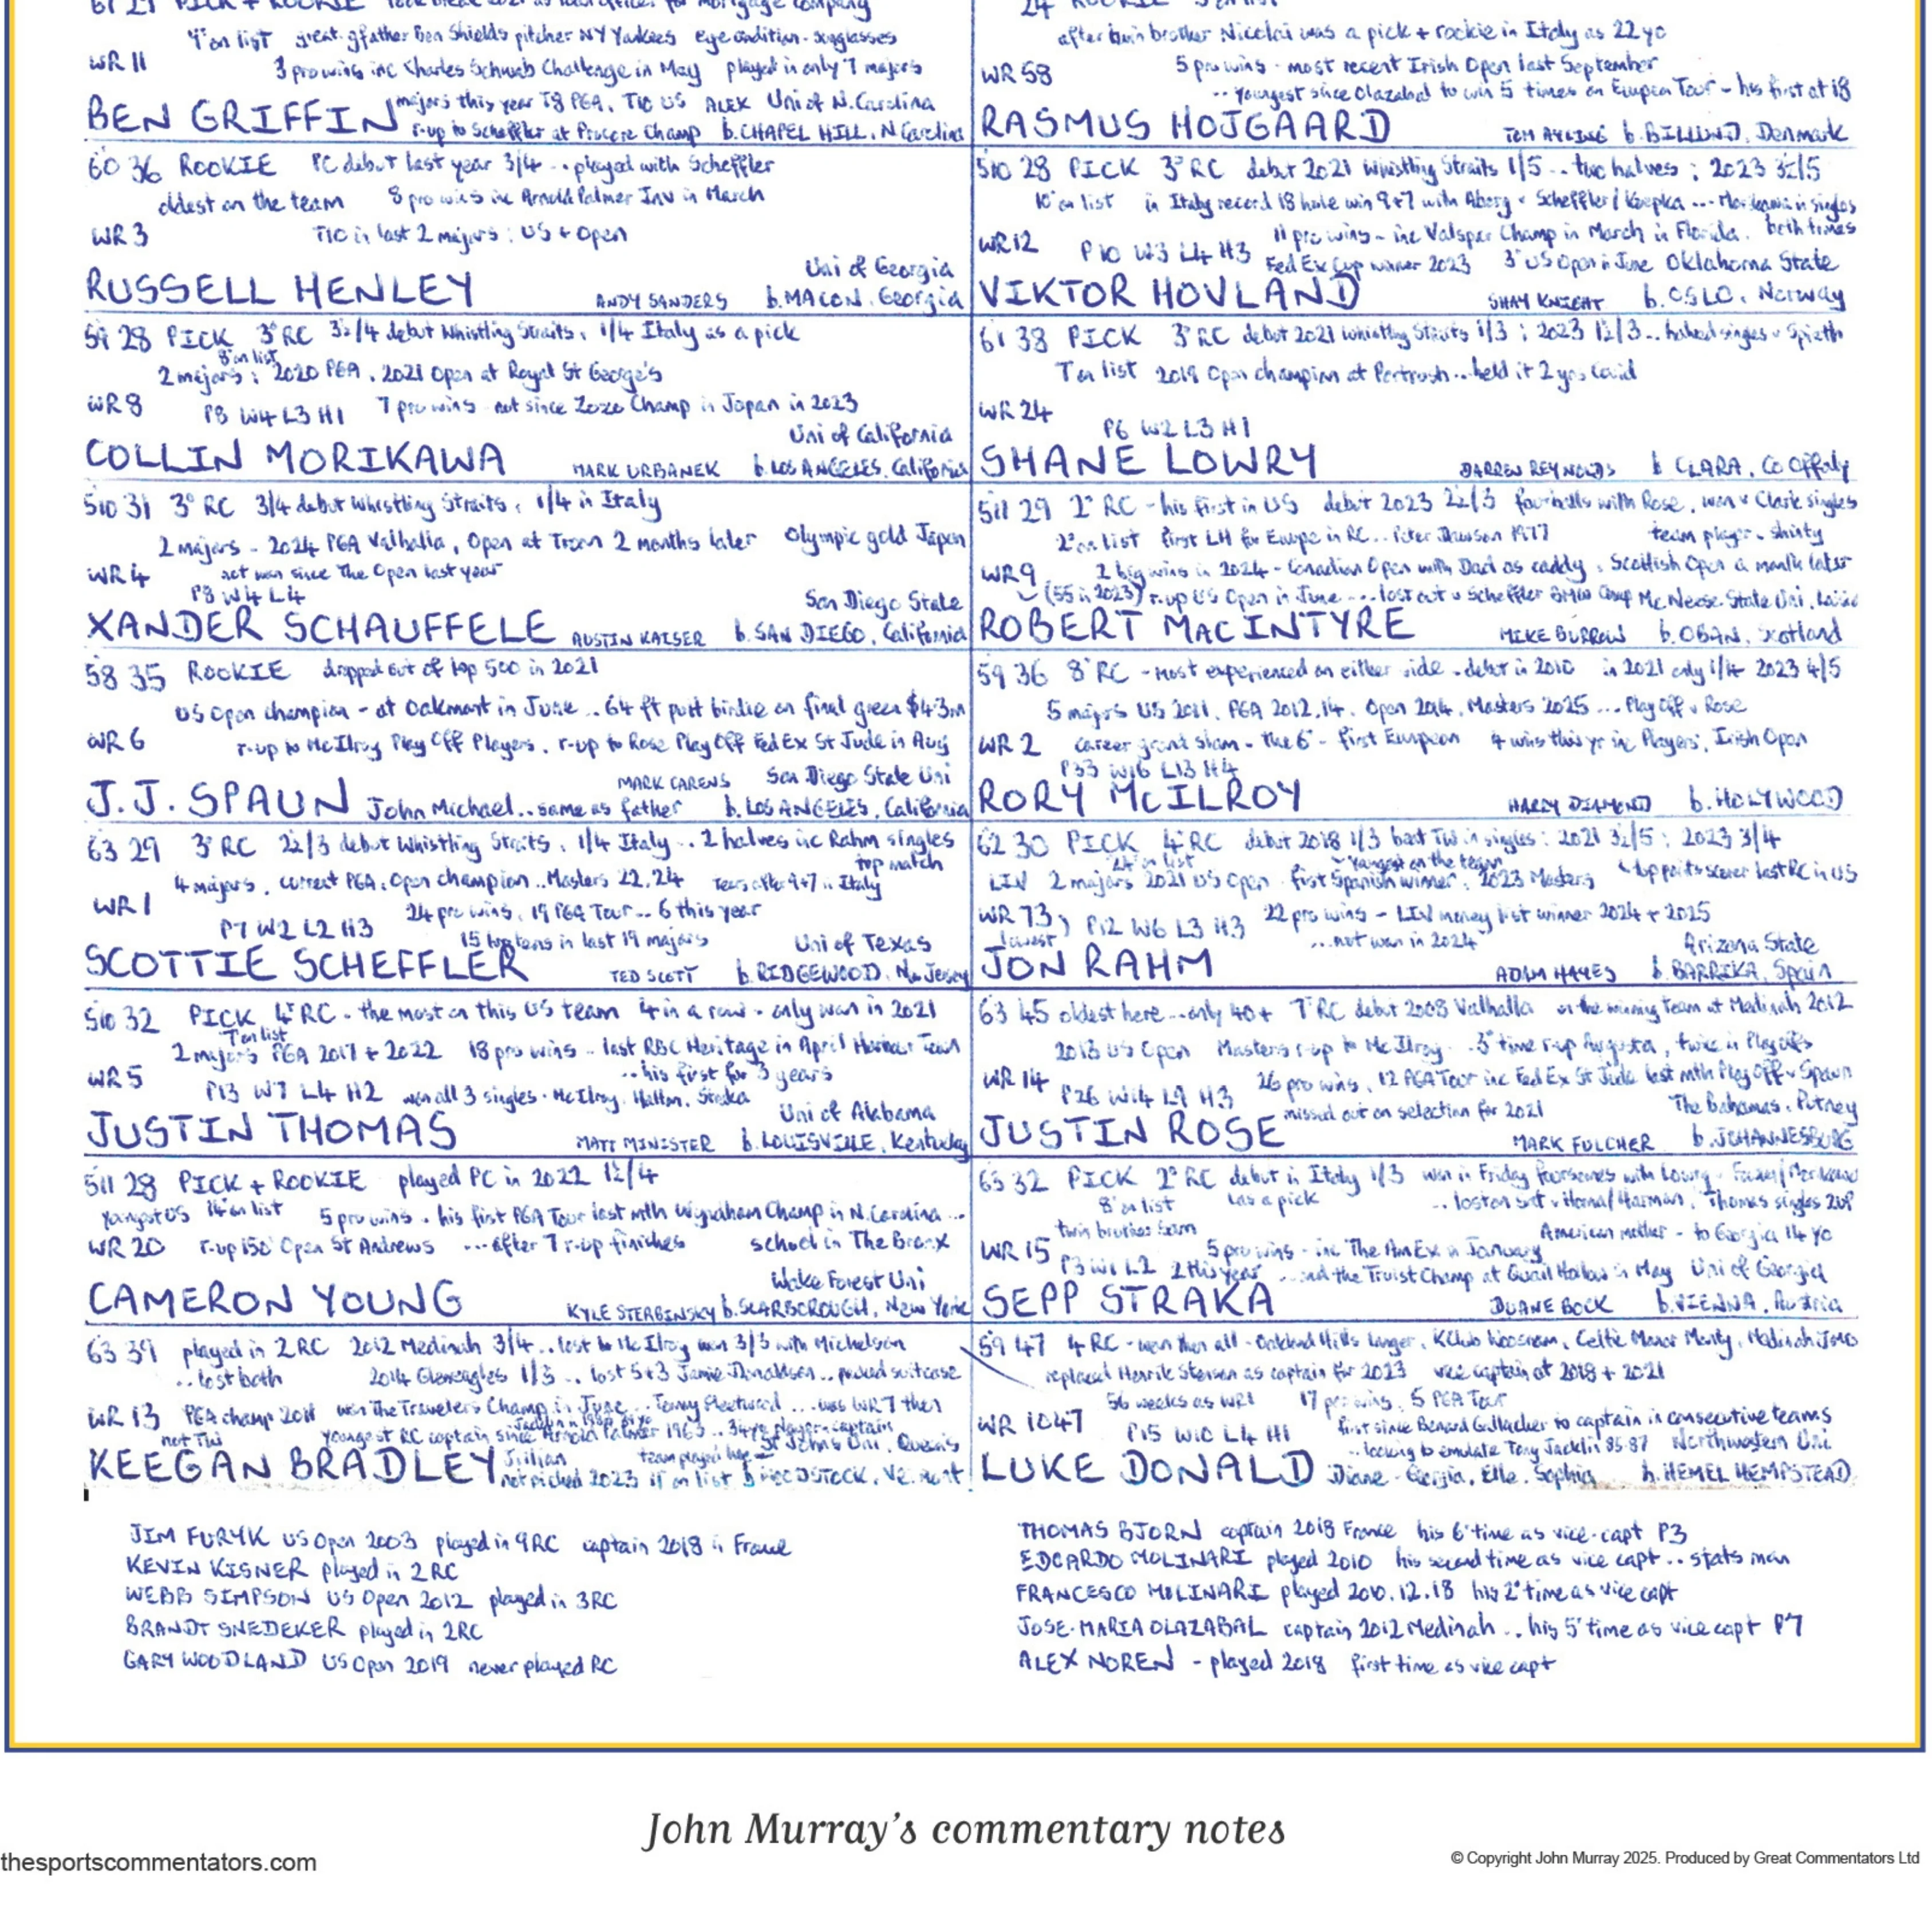 6'1 29 PICK + ROOKIE took break 2021 as loan officer for mortgage company
9° on list great gfather Ben Shields pitcher NY Yankees eye condition - sunglasses
WR 11
3 pro wins inc Charles Schwab Challenge in May played in only 7 majors
majors this year T8 PGA, T10 US ALEX Uni of N.Carolina
BEN GRIFFIN r-up to Scheffler at Procore Champ b.CHAPEL HILL, N Carolina
60 36 ROOKIE PC debut last year 3/4 .. played with Scheffler
oldest on the team 8 pro wins inc Arnold Palmer Inv in March
WR 3 T10 in last 2 majors : US + Open
Uni of Georgia
RUSSELL HENLEY ANDY SANDERS b.MACON, Georgia
59 28 PICK 3° RC 3½/4 debut Whistling Straits, 1/4 Italy as a pick
8° on list
2 majors : 2020 PGA, 2021 Open at Royal St George's
WR 8 P8 W4 L3 H1 7 pro wins - not since Zozo Champ in Japan in 2023
Uni of California
COLLIN MORIKAWA MARK URBANEK b.LOS ANGELES, California
510 31 3° RC 3/4 debut Whistling Straits, 1/4 in Italy
2 majors - 2024 PGA Valhalla, Open at Troon 2 months later Olympic gold Japan
WR 4 not won since The Open last year
P8 W4 L4
San Diego State
XANDER SCHAUFFELE AUSTIN KAISER b.SAN DIEGO, California
58 35 ROOKIE dropped out of top 500 in 2021
US Open champion - at Oakmont in June .. 64 ft putt birdie on final green $4.3m
WR 6 r-up to McIlroy Play Off Players, r-up to Rose Play Off FedEx St Jude in Aug
MARK CARENS San Diego State Uni
J.J. SPAUN John Michael .. same as father b.LOS ANGELES, California
63 29 3° RC 2½/3 debut Whistling Straits, 1/4 Italy .. 2 halves inc Rahm singles
top match
4 majors, current PGA, Open champion .. Masters 22, 24 Tears after 9+7 in Italy
WR 1 24 pro wins, 19 PGA Tour .. 6 this year
P7 W2 L2 H3
15 top tens in last 19 majors
Uni of Texas
SCOTTIE SCHEFFLER TED SCOTT b.RIDGEWOOD, New Jersey
510 32 PICK 4° RC - the most on this US team 4 in a row - only won in 2021
7° on list
2 majors PGA 2017 + 2022 18 pro wins - last RBC Heritage in April Harbour Town
.. his first for 3 years
WR 5 P13 W7 L4 H2 won all 3 singles - McIlroy, Hatton, Straka
Uni of Alabama
JUSTIN THOMAS MATT MINISTER b.LOUISVILLE, Kentucky
511 28 PICK + ROOKIE played PC in 2022 1½/4
youngest US 14° on list 5 pro wins - his first PGA Tour last mth Wyndham Champ in N.Carolina ...
WR 20 r-up 150° Open St Andrews ... after 7 r-up finishes school in The Bronx
Wake Forest Uni
CAMERON YOUNG KYLE STERBINSKY b.SCARBOROUGH, New York
63 39 played in 2 RC 2012 Medinah 3/4 .. lost to McIlroy won 3/3 with Mickelson
.. lost both 2014 Gleneagles 1/3 .. lost 5+3 Jamie Donaldson .. packed suitcase
WR 13 PGA champ 2011 won The Travelers Champ in June .. Tommy Fleetwood ... was WR 7 then
youngest RC captain since Arnold Palmer 1963 .. 34yo player-captain
St John's Uni, Queens
Jillian
KEEGAN BRADLEY not picked 2023 11° on list b.WOODSTOCK, Vermont
JIM FURYK US Open 2003 played in 9RC captain 2018 in France
KEVIN KISNER played in 2RC
WEBB SIMPSON US Open 2012 played in 3RC
BRANDT SNEDEKER played in 2RC
GARY WOODLAND US Open 2019 never played RC
24 ROOKIE
after twin brother Nicolai was a pick + rookie in Italy as 22 yo
WR 58 5 pro wins - most recent Irish Open last September
.. youngest since Olazabal to win 5 times on European Tour - his first at 18
RASMUS HOJGAARD TOM AYLING b.BILLUND, Denmark
510 28 PICK 3° RC debut 2021 Whistling Straits 1/5 .. two halves ; 2023 3½/5
10° on list in Italy record 18 hole win 9+7 with Aberg v Scheffler/Koepka ... Morikawa in singles
both times
WR 12 P10 W3 L4 H3 11 pro wins - inc Valspar Champ in March in Florida.
FedEx Cup winner 2023 3° US Open in June Oklahoma State
VIKTOR HOVLAND SHAY KNIGHT b.OSLO, Norway
61 38 PICK 3° RC debut 2021 Whistling Straits 1/3 ; 2023 1½/3 .. halved singles v Spieth
7° on list 2019 Open champion at Portrush .. held it 2 yrs Covid
WR 24
P6 W2 L3 H1
SHANE LOWRY DARREN REYNOLDS b CLARA, Co Offaly
511 29 2° RC - his first in US debut 2023 2½/3 fourballs with Rose, won v Clark singles
2° on list first LH for Europe in RC .. Peter Dawson 1977 team player - shinty
WR 9 2 big wins in 2024 - Canadian Open with Dad as caddy, Scottish Open a month later
(55 in 2023) r-up US Open in June ... lost out v Scheffler BMW Champ McNeese State Uni,
ROBERT MACINTYRE MIKE BURROW b.OBAN, Scotland
59 36 8° RC - most experienced on either side - debut in 2010 in 2021 only 1/4 2023 4/5
5 majors US 2011, PGA 2012, 14, Open 2014, Masters 2025 ... Play Off v Rose
WR 2 career grand slam - the 6° - first European 4 wins this yr inc Players, Irish Open
P33 W16 L13 H4
RORY McILROY HARRY DIAMOND b.HOLYWOOD
62 30 PICK 4° RC debut 2018 1/3 beat TW in singles : 2021 3½/5 ; 2023 3/4
youngest on the team
LIV 2 majors 2021 US Open - first Spanish winner, 2023 Masters top points scorer last RC in US
WR 73 P12 W6 L3 H3 22 pro wins - LIV money list winner 2024 + 2025
lowest ... not won in 2024
Arizona State
JON RAHM ADAM HAYES b.BARRIKA, Spain
63 45 oldest here .. only 40+ 7° RC debut 2008 Valhalla on the winning team at Medinah 2012
2013 US Open Masters r-up to McIlroy .. 3° time r-up Augusta, twice in Play Offs
WR 14 P26 W14 L9 H3 26 pro wins, 12 PGA Tour inc FedEx St Jude last mth Play Off v Spaun
missed out on selection for 2021 The Bahamas, Putney
JUSTIN ROSE MARK FULCHER b.JOHANNESBURG
63 32 PICK 2° RC debut in Italy 1/3 won in Friday foursomes with Lowry v Fowler/Morikawa
8° on list was a pick .. lost on Sat v Homa/Harman, Thomas singles 2up
twin brother Sam American mother - to Georgia 14 yo
WR 15 P3 W1 L2 5 pro wins - inc The AmEx in January
2 this year ... and the Truist Champ at Quail Hollow in May Uni of Georgia
SEPP STRAKA DUANE BOCK b.VIENNA, Austria
59 47 4 RC - won them all - Oakland Hills Langer, K Club Woosnam, Celtic Manor Monty, Medinah JMO
replaced Henrik Stenson as captain for 2023 vice captain at 2018 + 2021
56 weeks as WR1 17 pro wins, 5 PGA Tour
WR 1047 P15 W10 L4 H1 first since Bernard Gallacher to captain in consecutive teams
.. looking to emulate Tony Jacklin 85-87 Northwestern Uni
LUKE DONALD Diane - Georgia, Elle, Sophia b.HEMEL HEMPSTEAD
THOMAS BJORN captain 2018 France his 6° time as vice-capt P3
EDOARDO MOLINARI played 2010 his second time as vice capt .. stats man
FRANCESCO MOLINARI played 2010.12.18 his 2° time as vice capt
JOSE-MARIA OLAZABAL captain 2012 Medinah .. his 5° time as vice capt P7
ALEX NOREN - played 2018 first time as vice capt
John Murray's commentary notes
thesportscommentators.com
© Copyright John Murray 2025. Produced by Great Commentators Ltd